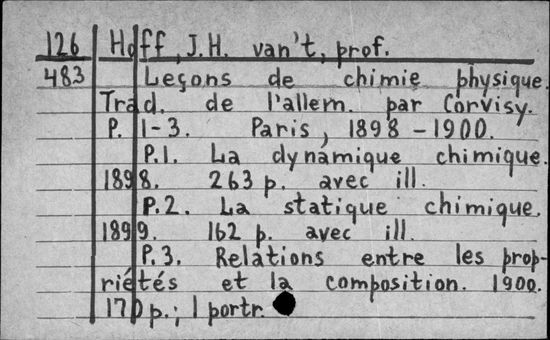 126 Hoff, J.H. van't, prof.
483 Leçons de chimie physique.
Trad. de l'allem. par Corvisy.
P. 1-3. Paris, 1898-1900.
P.1. La dynamique chimique.
1898. 263 p. avec ill.
P.2. La statique chimique.
1899. 162 p. avec ill.
P.3. Relations entre les prop-
riétés et la composition. 1900.
170 p.; 1 portr.